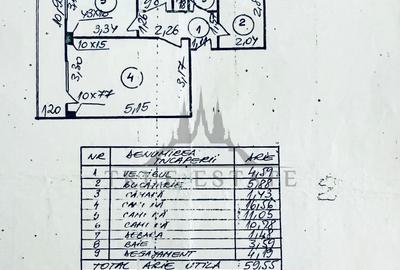 3,34
1,26
2,26
1
2
2,04
10x15
3,30
4
3,17
10x77
120
5,15
NR DENUMIREA ÎNCAPERII ARIE
1 VESTIBUL 4,59
2 BUCĂTĂRIE 5,88
3 CĂMARĂ 1,43
4 CAMERĂ 16,56
5 CAMERĂ 11,05
6 CAMERĂ 10,98
7 DEBARA 1,48
8 BAIE 3,59
9 DEGAJAMENT 4,19
TOTAL ARIE UTILĂ 59,55